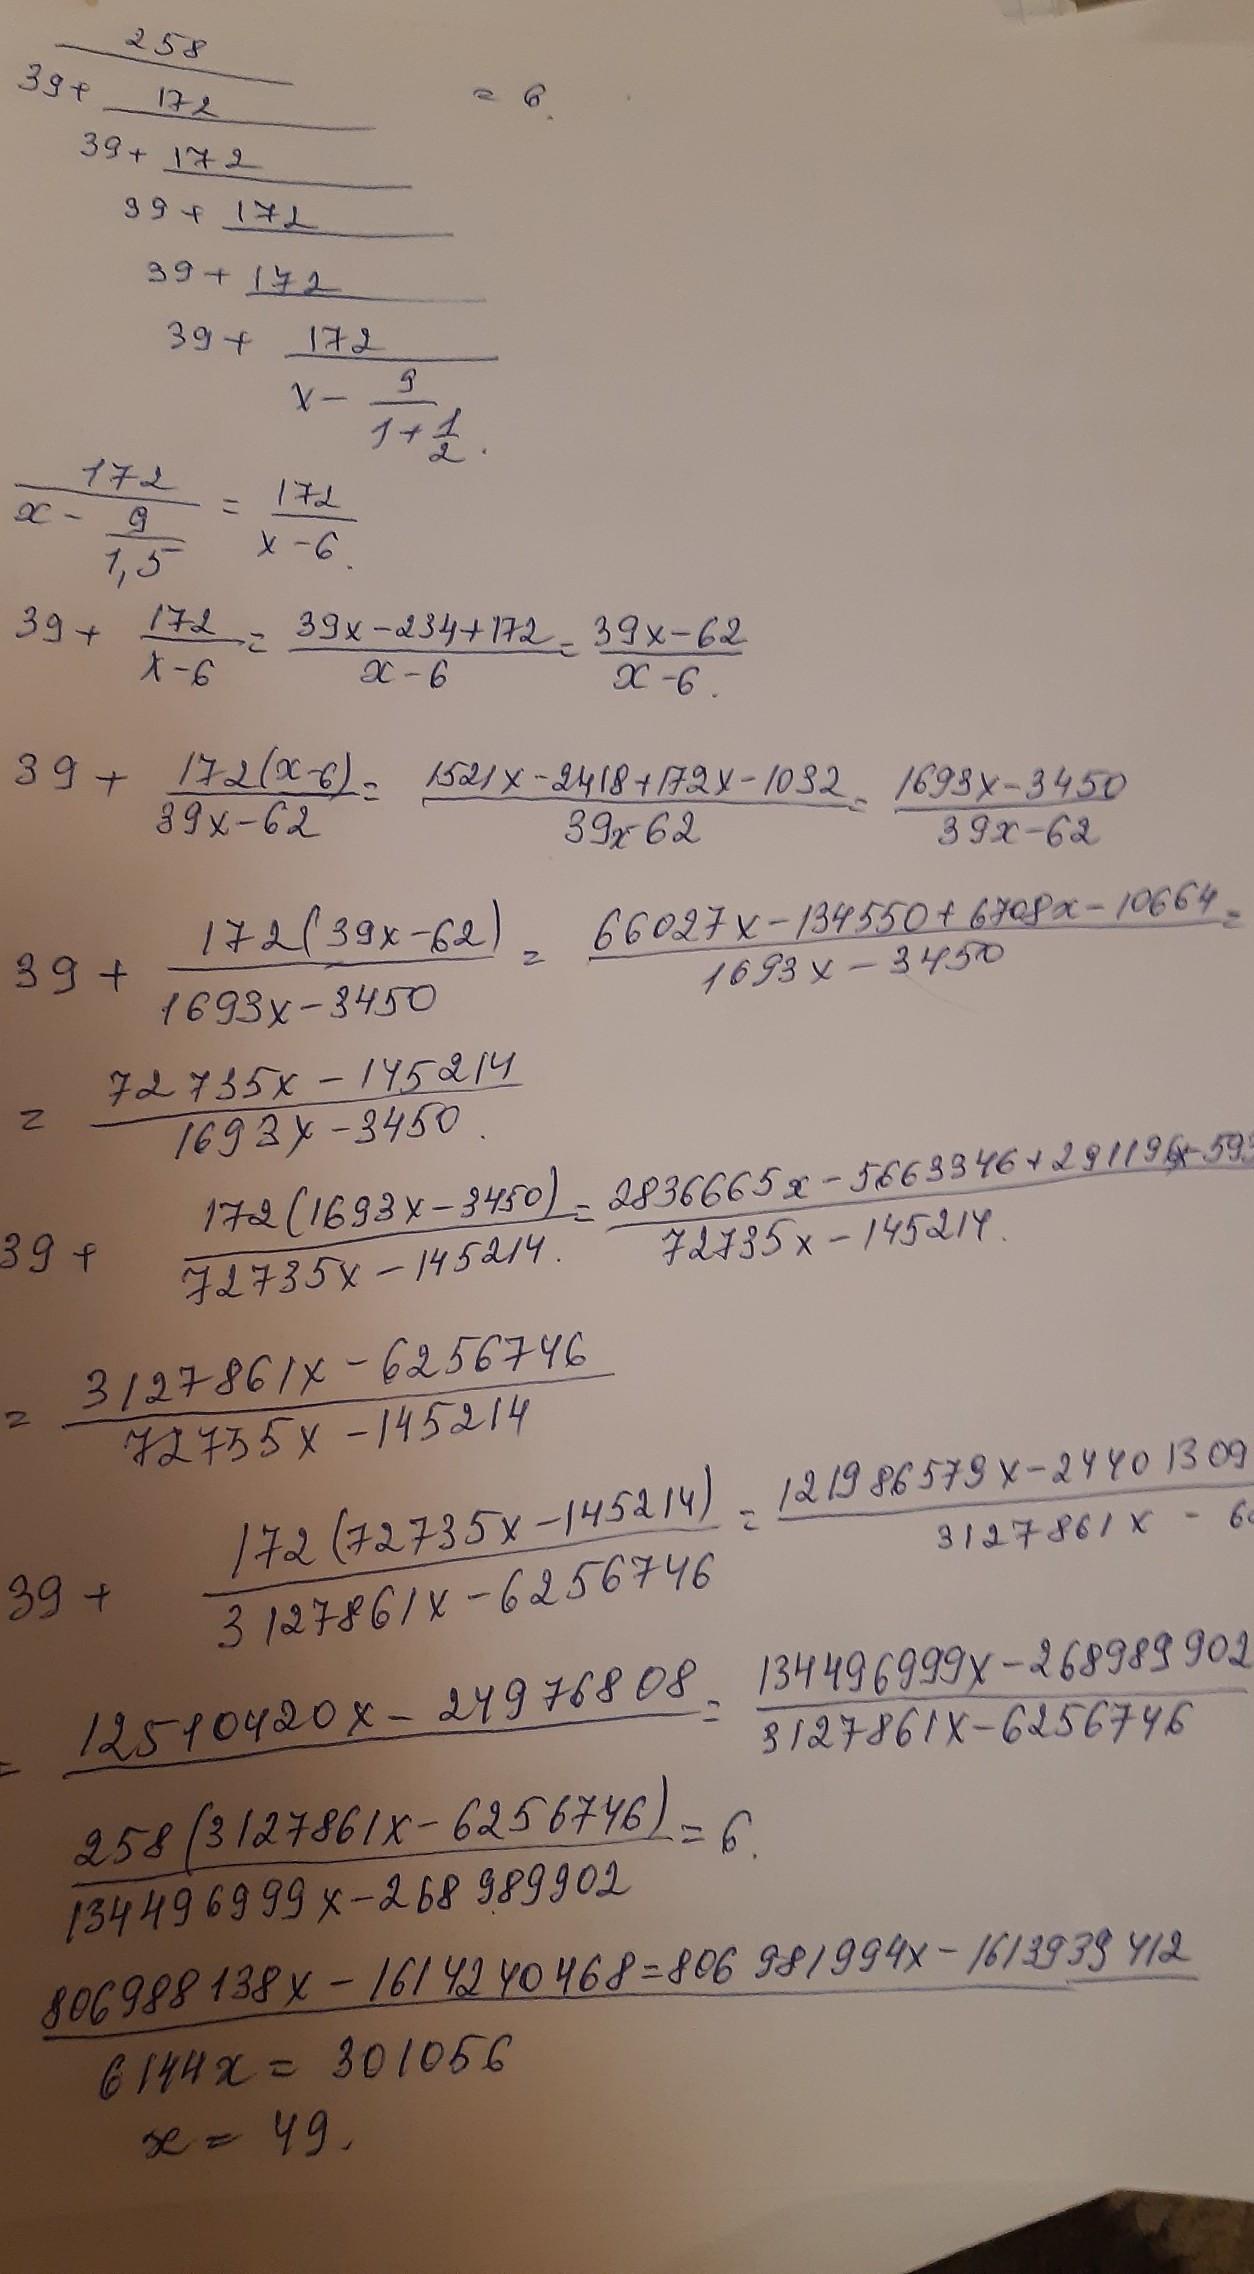 258
39+ 172 = 6.
39+ 172
39+ 172
39+ 172
39+ 172
x- 9
1+ 1
2.
172 / x- 9/1,5 = 172 / x-6.
39+ 172 / x-6 = 39x-234+172 / x-6 = 39x-62 / x-6.
39+ 172(x-6) / 39x-62 = 1521x-2418+172x-1032 / 39x-62 = 1693x-3450 / 39x-62
39+ 172(39x-62) / 1693x-3450 = 66027x-134550+6708x-10664 / 1693x-3450 =
= 72735x-145214 / 1693x-3450.
39+ 172(1693x-3450) / 72735x-145214. = 2836665x-5663346+291196x-593 / 72735x-145214.
= 3127861x-6256746 / 72735x-145214
39+ 172(72735x-145214) / 3127861x-6256746 = 121986579x-24401309 / 3127861x-6
= 12510420x-24976808 = 134496999x-268989902 / 3127861x-6256746
258(3127861x-6256746) / 134496999x-268989902 = 6.
806988138x-1614240468=806981994x-1613939412
6144x = 301056
x = 49.